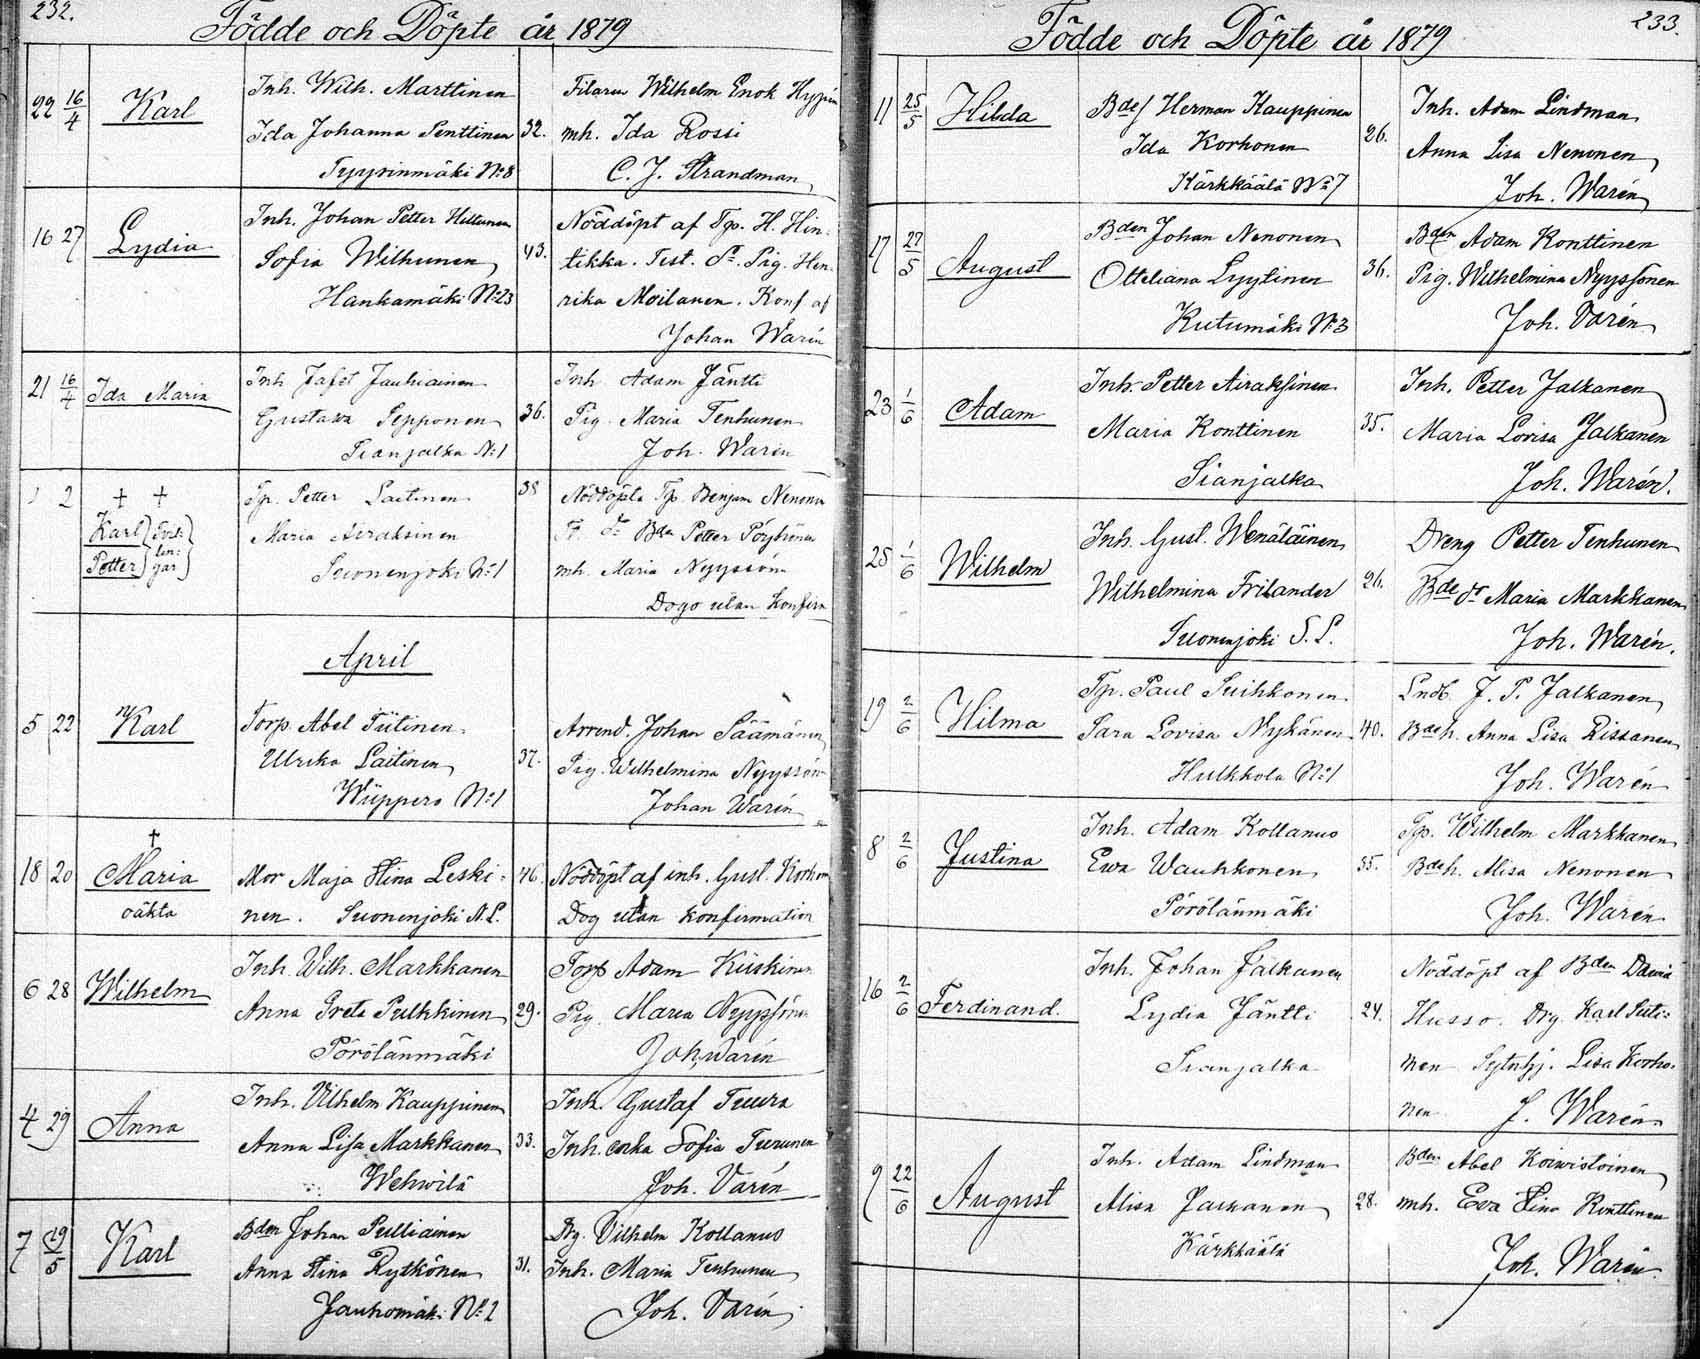 232.
Födde och Döpte år 1879
22 16/4 Karl
Inh. Wilh. Marttinen
Ida Johanna Penttinen 32.
Tyyrinmäki N:o 8
Filaren Wilhelm Enok
mh. Ida Rossi
C. J. Strandman
16 27 Lydia
Inh. Johan Petter Hiltunen
Sofia Wilhunen 43.
Hankamäki N:o 23
Nöddöpt af Tp. H. Hin-
tikka. Test. Pig. Hen-
rika Moilanen. Konf. af
Johan Warén
21 16/4 Ida Maria
Inh. Jafet Jauhiainen
Gustava Sepponen 36.
Sianjalka N:1
Inh. Adam Jäntti
Pig. Maria Tenhunen
Joh. Warén
2 † †
Karl
Petter
Tvil-
lin-
gar
Tp. Petter Laitinen 38
Maria Airaksinen
Suonenjoki N:1
Nöddöpta Tp. Benjam Nenonen
Bdn Petter Pöyhönen
mh. Maria Nyyssön
Dogo utan konfirm
April
5 22 Karl
Torp. Abel Tiitinen
Ulrika Laitinen 37.
Wiippero N:1
Arrend. Johan Säämänen
Pig. Wilhelmina Nyyssön
Johan Warén
†
18 20 Maria
oäkta
Mor Maja Stina Leski- 46.
nen. Suonenjoki N.L.
Nöddöpt af inh. Gust. Korhon
Dog utan konfirmation
6 28 Wilhelm
Inh. Wilh. Markkanen
Anna Greta Pulkkinen 29.
Pörölänmäki
Torp Adam Kiiskinen
Pig. Maria Nyyssönen
Joh. Warén
4 29 Anna
Inh. Vilhelm Kauppinen
Anna Lisa Markkanen 33.
Wehwilä
Inh. Gustaf Tuura
Inh. enka Sofia Turunen
Joh. Varén
7 19/5 Karl
Bden Johan Pulliainen
Anna Stina Rytkönen 31.
Jauhomäki N:2
Dg. Vilhelm Kollanus
Inh. Maria Tenhunen
Joh. Varén
233.
Födde och Döpte år 1879
11 25/5 Hilda
Bdes Herman Kauppinen
Ida Korhonen 26.
Kärkkäälä N:o 7
Inh. Adam Lindman
Anna Lisa Nenonen
Joh. Warén
17 27/5 August
Bden Johan Nenonen
Otteliana Lyytinen 36.
Kutumäki N:3
Bden Adam Konttinen
Pig. Wilhelmina Nyyssonen
Joh. Varén
23 1/6 Adam
Inh. Petter Airaksinen
Maria Konttinen 35.
Sianjalka
Inh. Petter Jalkanen
Maria Lovisa Jalkanen
Joh. Warén.
25 1/6 Wilhelm
Inh. Gust. Wenäläinen
Wilhelmina Frilander 26.
Suonenjoki S. L.
Dreng Petter Tenhunen
Bde dr Maria Markkanen
Joh. Warén.
19 2/6 Hilma
Tp. Paul Suihkonen
Sara Lovisa Nykänen 40.
Hulkkola N:1
Lndb. J. P. Jalkanen
Bdeh. Anna Lisa Rissanen
Joh. Warén
8 2/6 Justina
Inh. Adam Kollanus
Ewa Wauhkonen 35.
Pörölänmäki
Tp. Wilhelm Markkanen
Bdeh. Alisa Nenonen
Joh. Warén
16 2/6 Ferdinand.
Inh. Johan Jalkanen
Lydia Jäntti 24.
Sianjalka
Nöddöpt af Bden David
Husso. Drg. Karl Piiti-
nen Sytnhj. Lisa Korho-
nen J. Warén
9 22/6 August
Inh. Adam Lindman
Alisa Jalkanen 28.
Kärkkäälä
Bden Abel Koiwistoinen
mh. Eva Stina Konttinen
Joh. Warén